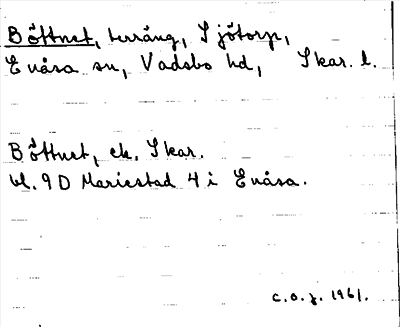 Böttnet, terräng, Sjötorp,
Enåsa sn, Vadsbo hd, Skar. l.
Böttnet, ek. Skar.
bl. 9D Mariestad 4 i Enåsa.
c.o.j. 1961.